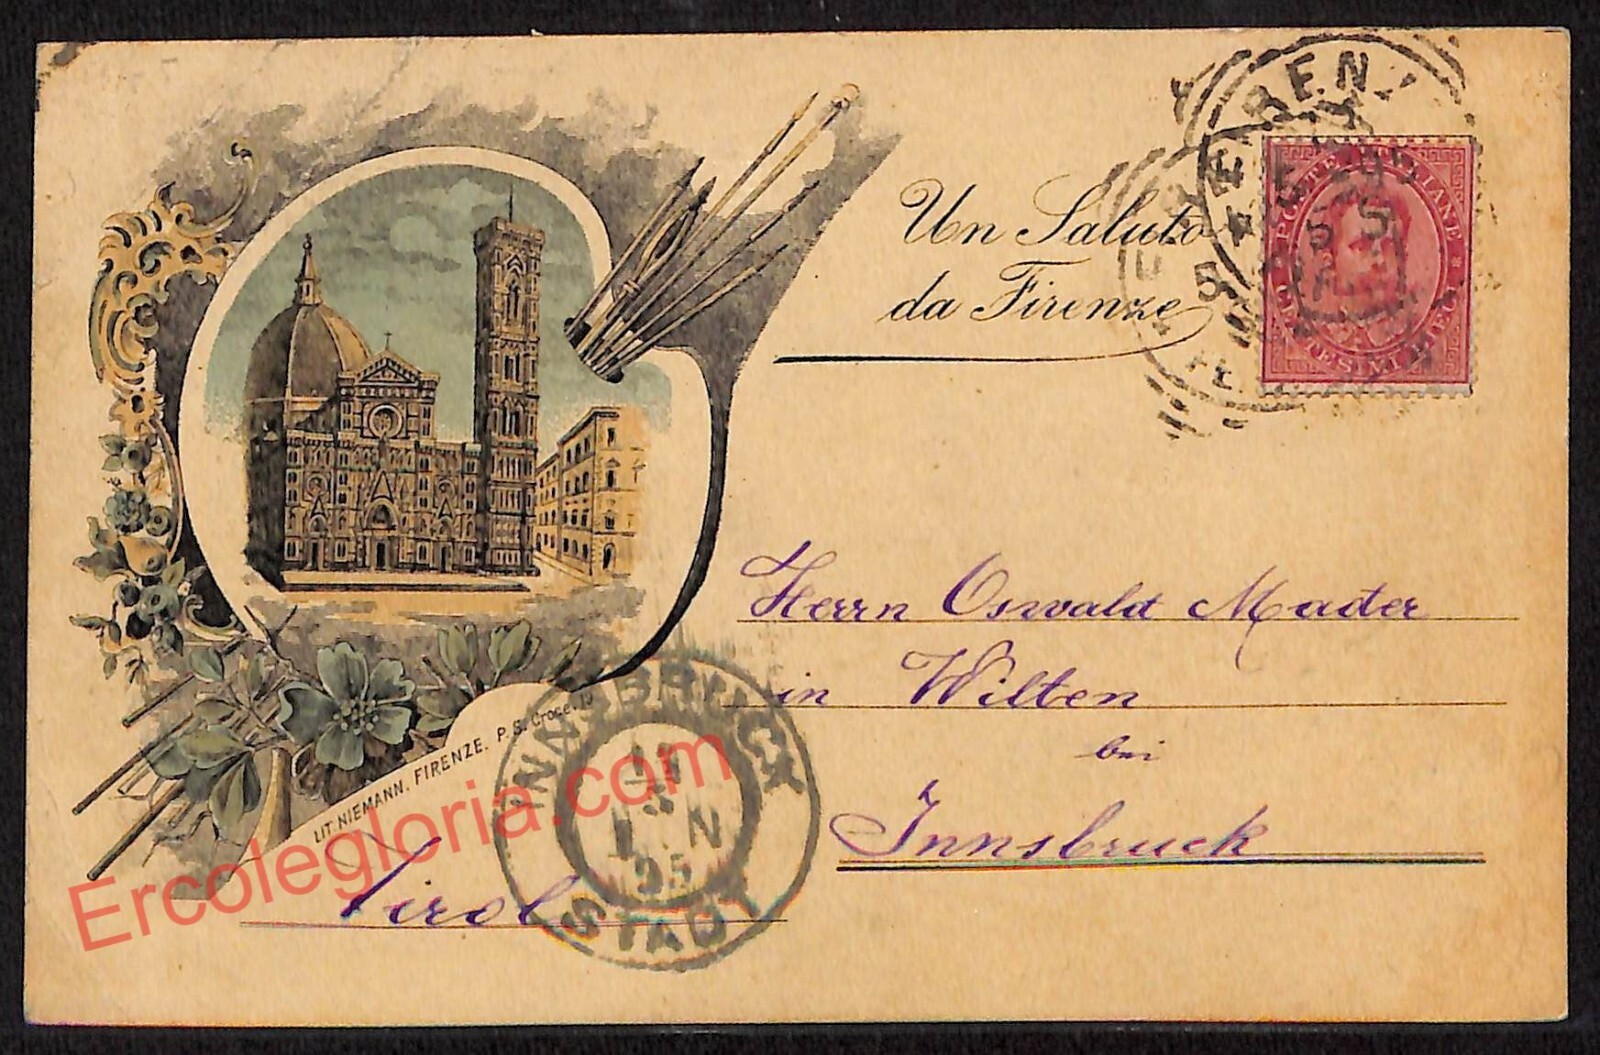 Un Saluto
da Firenze
FIRENZ
POSTE ITALIANE
CENTESIMI DIECI
Herrn Oswald Mader
in Wilten
bei
Innsbruck
Tirol
LIT. NIEMANN. FIRENZE. P. S. Croce. 19
INNSBRUCK
N
95
STADT
Ercolegloria.com